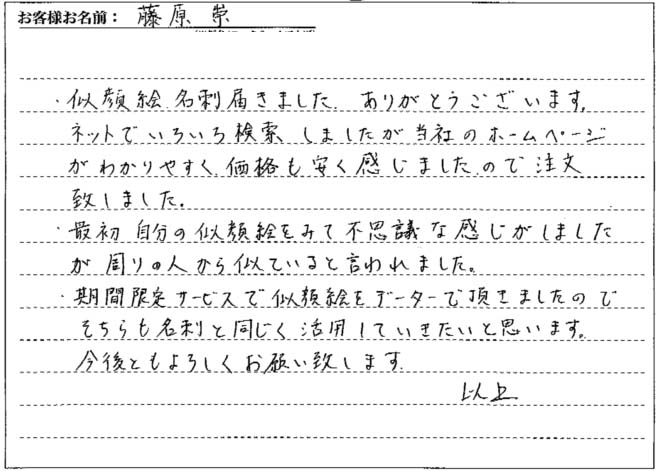 お客様お名前： 藤原 崇
・似顔絵名刺届きました。ありがとうございます。
ネットでいろいろ検索しましたが当社のホームページ
がわかりやすく価格も安く感じましたので注文
致しました。
・最初自分の似顔絵をみて不思議な感じがしました
が周りの人から似ていると言われました。
・期間限定サービスで似顔絵をデーターで頂きましたので
そちらも名刺と同じく活用していきたいと思います。
今後ともよろしくお願い致します
以上